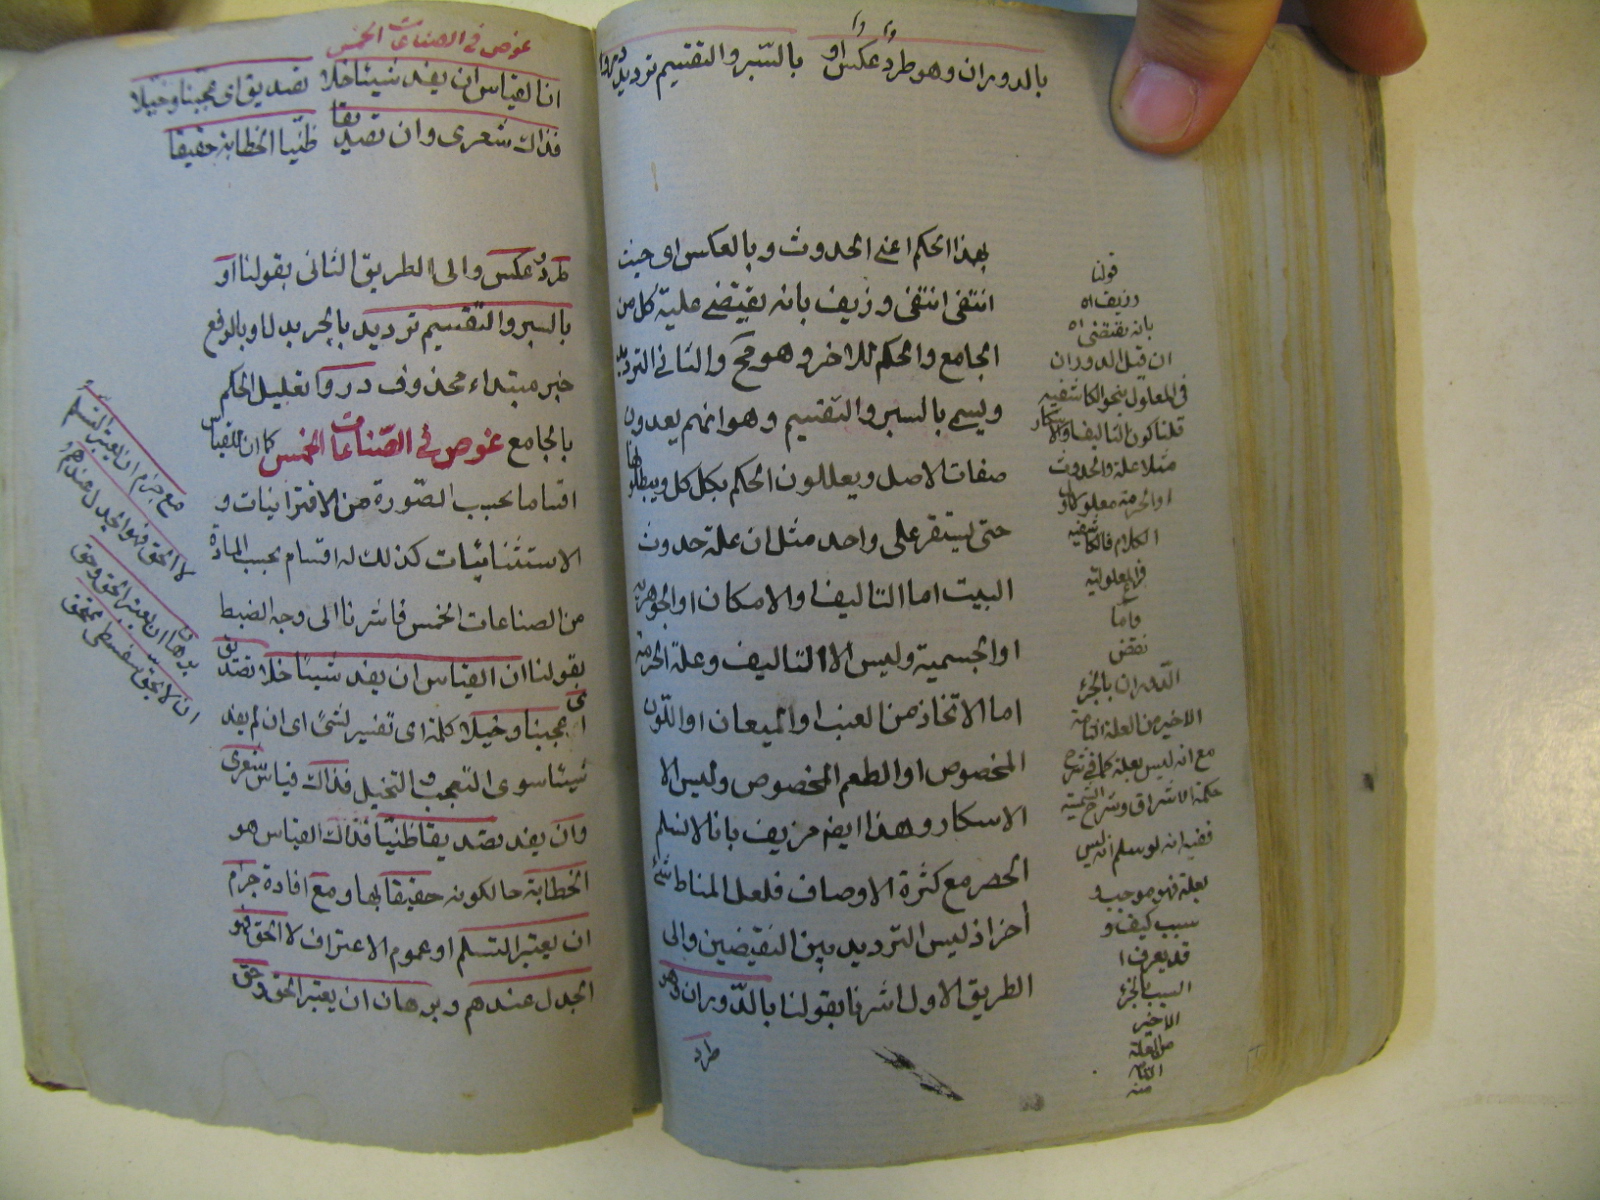 بالدوران وهو طرد وعكس او بالسّبر والتقسيم ترديد دروا
بهذا الحكم اعنے الحدوث وبالعكس اى حيث
انتفى انتفى وزيف بانه يقتضے علية كل من
الجامع والحكم للاخر وهو مح والثانے الترديد
ويسمے بالسبر والتقسيم وهو انهم يعدون
صفات الاصل ويعللون الحكم بكل كل ويبطلونها
حتى يستقر على واحد مثل ان علة حدوث
البيت اما التاليف او الامكان او الجوهرية
او الجسمية وليس الا التاليف وعلة الحرمة
اما الاتخاذ من العنب او الميعان او اللّون
المخصوص او الطعم المخصوص وليس الا
الاسكار وهذا ايضه مزيف بانا لا نسلم
الحصر مع كثرة الاوصاف فلعل المناط شئ
أخر اذ ليس الترديد بين النقيضين والى
الطريق الاول اشرنا بقولنا بالدّوران وهو
طرد
قولنا
وزيف اه
بانه يقتضى اه
ان قيل الدوران
فى المعاول بنحو الكاشفيه
قلنا كون التاليف والاسكار
مثلا علة والحدوث
او الحرمة معلولا
الكلام فالكاشفيه
فرع المعلولية
واما
نقض
الدّوران بالجزء
الاخير من العلة التامة
مع انه ليس بعلة كما فى شرح
حكمة الاشراق وشرح الشمسية
ففيه انه لو سلم انه ليس
بعلة فهو موجب و
سبب كيف و
قد يعرف ا
السبب بالجزء
الاخير
من العلة
التامة
منه
غوص فى الصناعات الخمس
ان القياس ان يفد شيئا خلا تصديق اى عجبنا وخيلا
فذاك شعرى وان تصديقا ظنّيا الخطابة حقيقا
طرد وعكس والى الطريق الثانى بقولنا او
بالسبر والتّقسيم ترديد بالجر بدلا وبالرفع
خبر مبتداء محذوف دروا تعليل الحكم
بالجامع غوص فى الصّناعات الخمس كما ان للقياس
اقساما بحسب الصّورة من الاقترانيات و
الاستثنائيات كذلك له اقسام بحسب المادة
من الصناعات الخمس فاشرنا الى وجه الضبط
بقولنا ان القياس ان يفد شيئا خلا تصديق
اى عجبنا وخيلا كلمة اى تفسير لشئ اى ان لم يفد
شيئا سوى التعجب والتخيل فذاك قياس شعرى
وان يفد تصديقا ظنيّا فذاك القياس هو
الخطابة حالكونه حقيقا بها ومع افادة جزم
ان يعتبر التسلم او عموم الاعتراف لا الحق فهو
الجدل عندهم وبرهان ان يعتبر الحق وحق
مع جزم ان يعتبر التسلم
لا الحق فهو الجدل عندهم
برهان ان يعتبر الحق وحق
ان لا بحق سفسطى محق